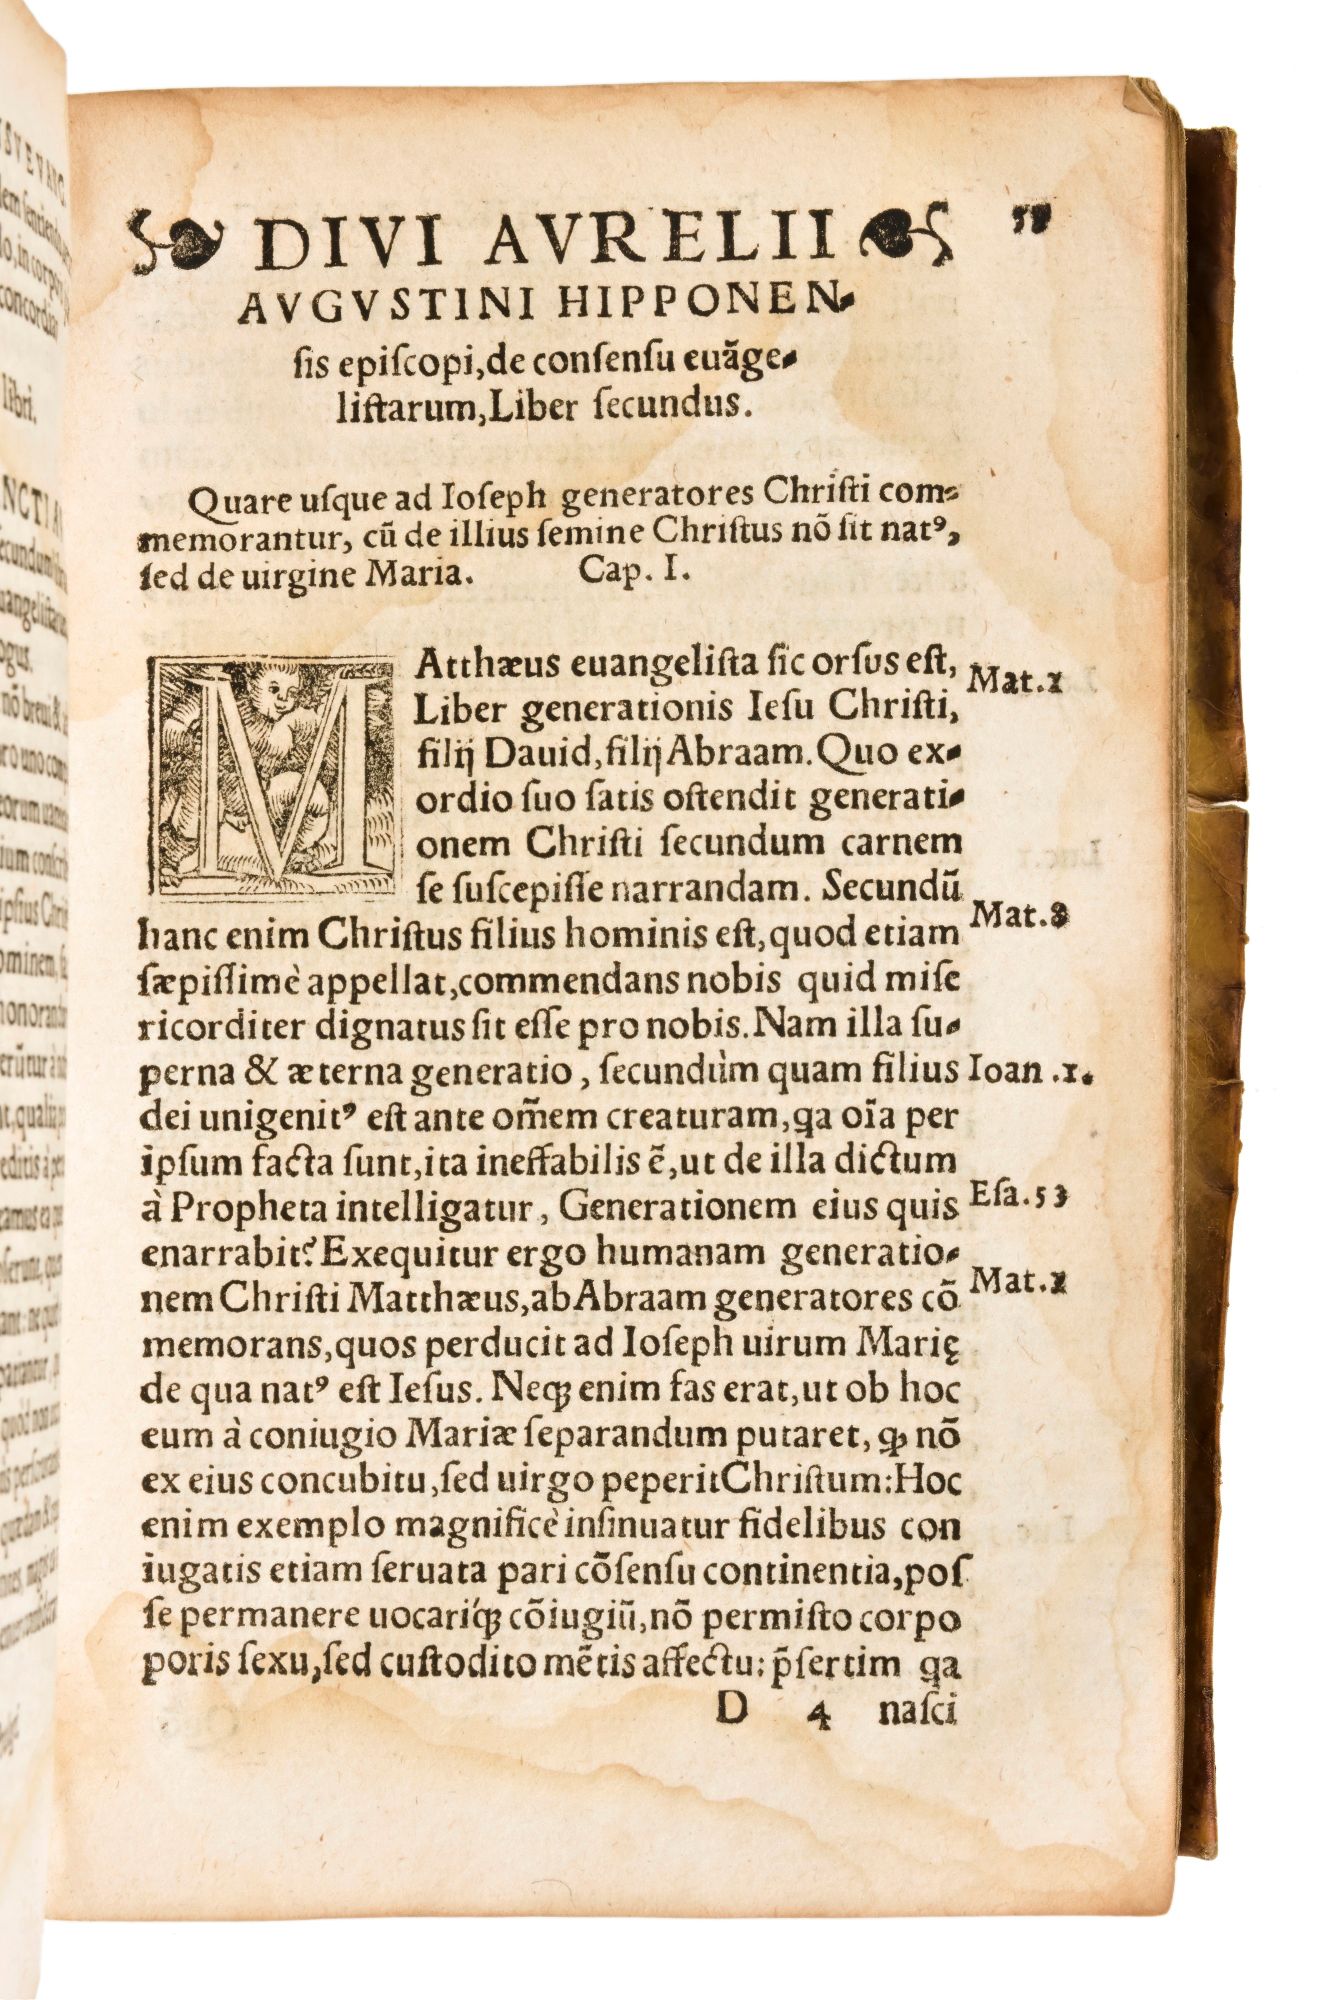 DIVI AVRELII "
AVGVSTINI HIPPONEN-
sis episcopi, de consensu euãge-
listarum, Liber secundus.
Quare usque ad Ioseph generatores Christi com-
memorantur, cũ de illius semine Christus nõ sit natꝰ,
sed de uirgine Maria. Cap. I.
MAtthæus euangelista sic orsus est, Mat.1
Liber generationis Iesu Christi,
filij Dauid, filij Abraam. Quo ex-
ordio suo satis ostendit generati-
onem Christi secundum carnem
se suscepisse narrandam. Secundũ
hanc enim Christus filius hominis est, quod etiam Mat.8
sæpissimè appellat, commendans nobis quid mise
ricorditer dignatus sit esse pro nobis. Nam illa su-
perna & æterna generatio, secundùm quam filius Ioan.1.
dei unigenitꝰ est ante om̃em creaturam, ꝗa oĩa per
ipsum facta sunt, ita ineffabilis ẽ, ut de illa dictum
à Propheta intelligatur, Generationem eius quis Esa.53
enarrabit? Exequitur ergo humanam generatio-
nem Christi Matthæus, ab Abraam generatores cõ Mat.1
memorans, quos perducit ad Ioseph uirum Marię
de qua natꝰ est Iesus. Neqꝫ enim fas erat, ut ob hoc
eum à coniugio Mariæ separandum putaret, ꝙ nõ
ex eius concubitu, sed uirgo peperit Christum: Hoc
enim exemplo magnificè insinuatur fidelibus con
iugatis etiam seruata pari cõsensu continentia, pos
se permanere uocariqꝫ cõiugiũ, nõ permisto corpo
poris sexu, sed custodito mẽtis affectu: p̃sertim ꝗa
D 4 nasci